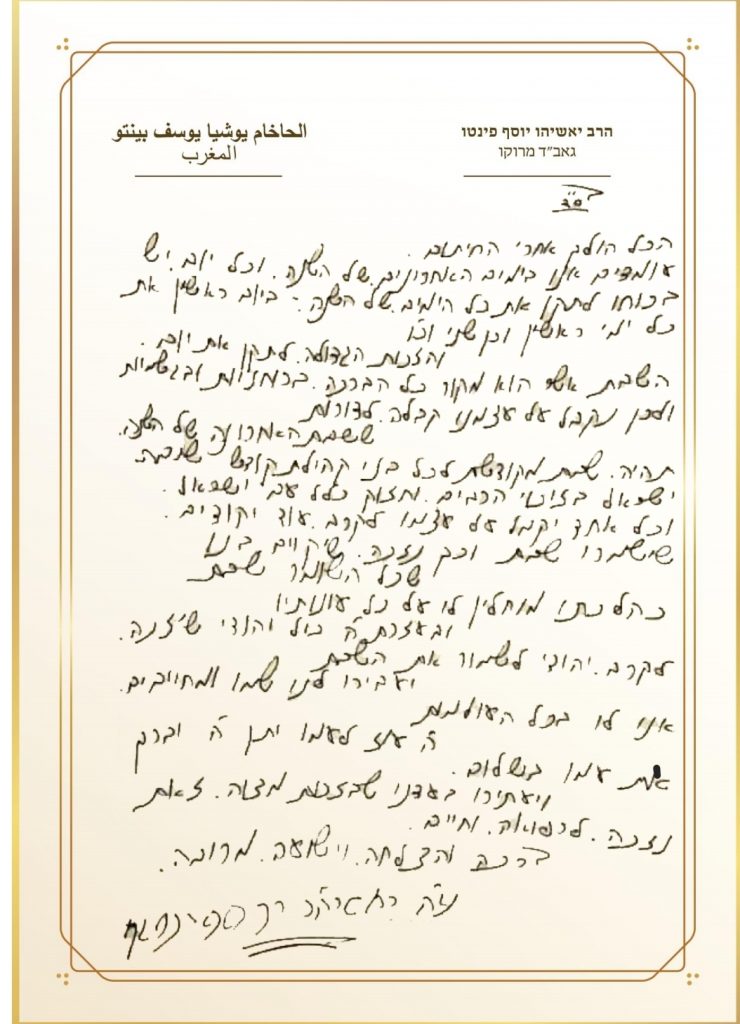 הרב יאשיהו יוסף פינטו
גאב״ד מרוקו
الحاخام يوشيا يوسف بينتو
المغرب
בס״ד
הכל הולך אחרי החיתום.
עומדים אנו בימים האחרונים של השנה. וכל יום יש
בכוחו לתקן את כל הימים של השנה. ביום ראשון את
כל ימי ראשון וכן שני וכו
והזכות הגדולה. לתקן את יום.
השבת אשר הוא מקור כל הברכה. ברוחניות ובגשמיות
ולכן נקבל על עצמנו קבלה. לדורות
ששבת האחרונה של השנה.
תהיה. שבת מקודשת לכל בני קהילת קודש
ישראל בזיכוי הרבים. וחזוק כלל עם ישראל.
וכל אחד יקבל על עצמו לקרב. עוד יהודים.
שישמרו שבת וכך נזכה. שיקוים בנו
שכל השומר שבת
כהלכתו מוחלין לו על כל עונותיו
ובעזרת ה׳ כל יהודי שיזכה.
לקרב. יהודי לשמור את השבת
יעבירו לנו שמו ומחוייבים.
אנו לו בכל העולמות
ה׳ עוז לעמו יתן ה׳ יברך
את עמו בשלום.
ויעתירו בעדני שבזכות מצוה. זאת
נזכה. לרפואה. וחיים.
ברכה והצלחה. וישועה. מרובה.